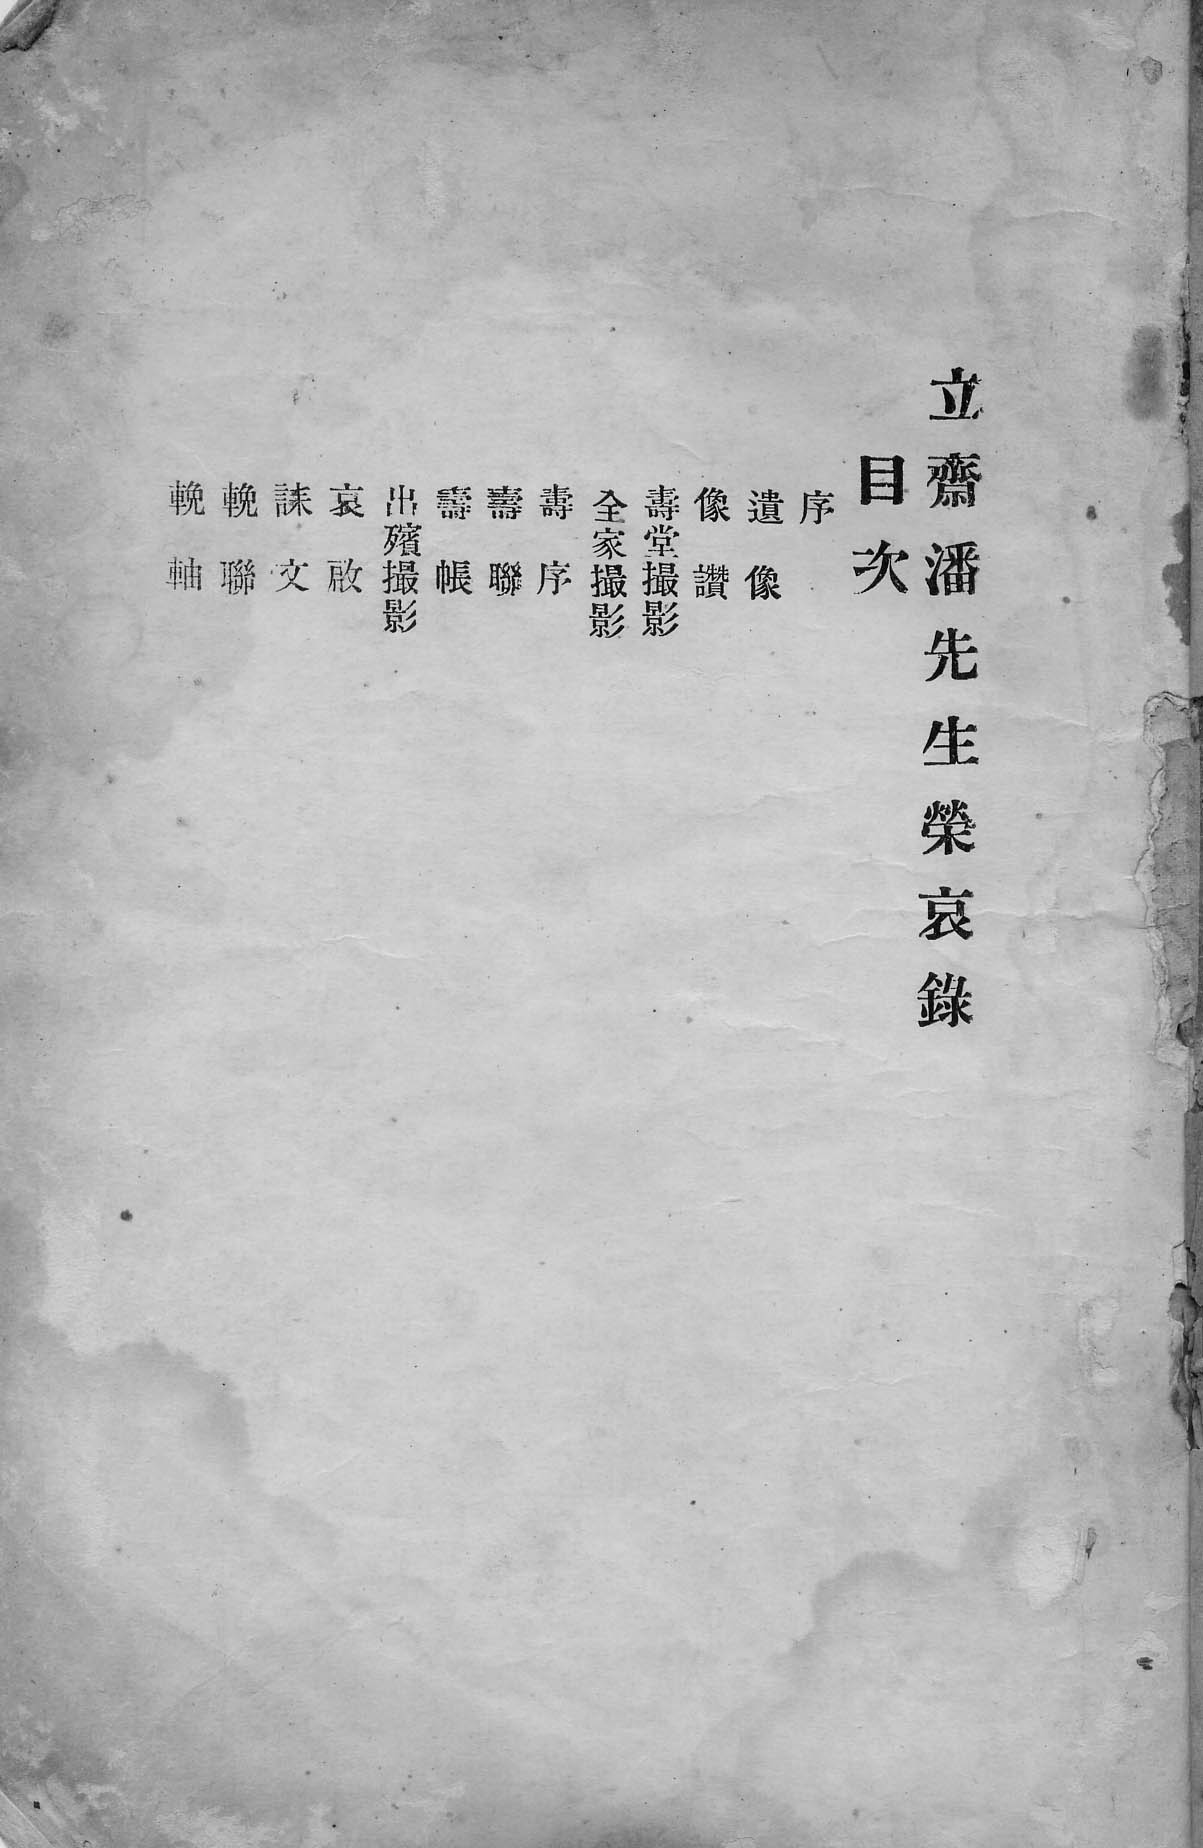 立齋潘先生榮哀錄
目次
序
遺像
像讚
壽堂撮影
全家撮影
壽序
壽聯
壽帳
出殯撮影
哀啟
誄文
輓聯
輓軸